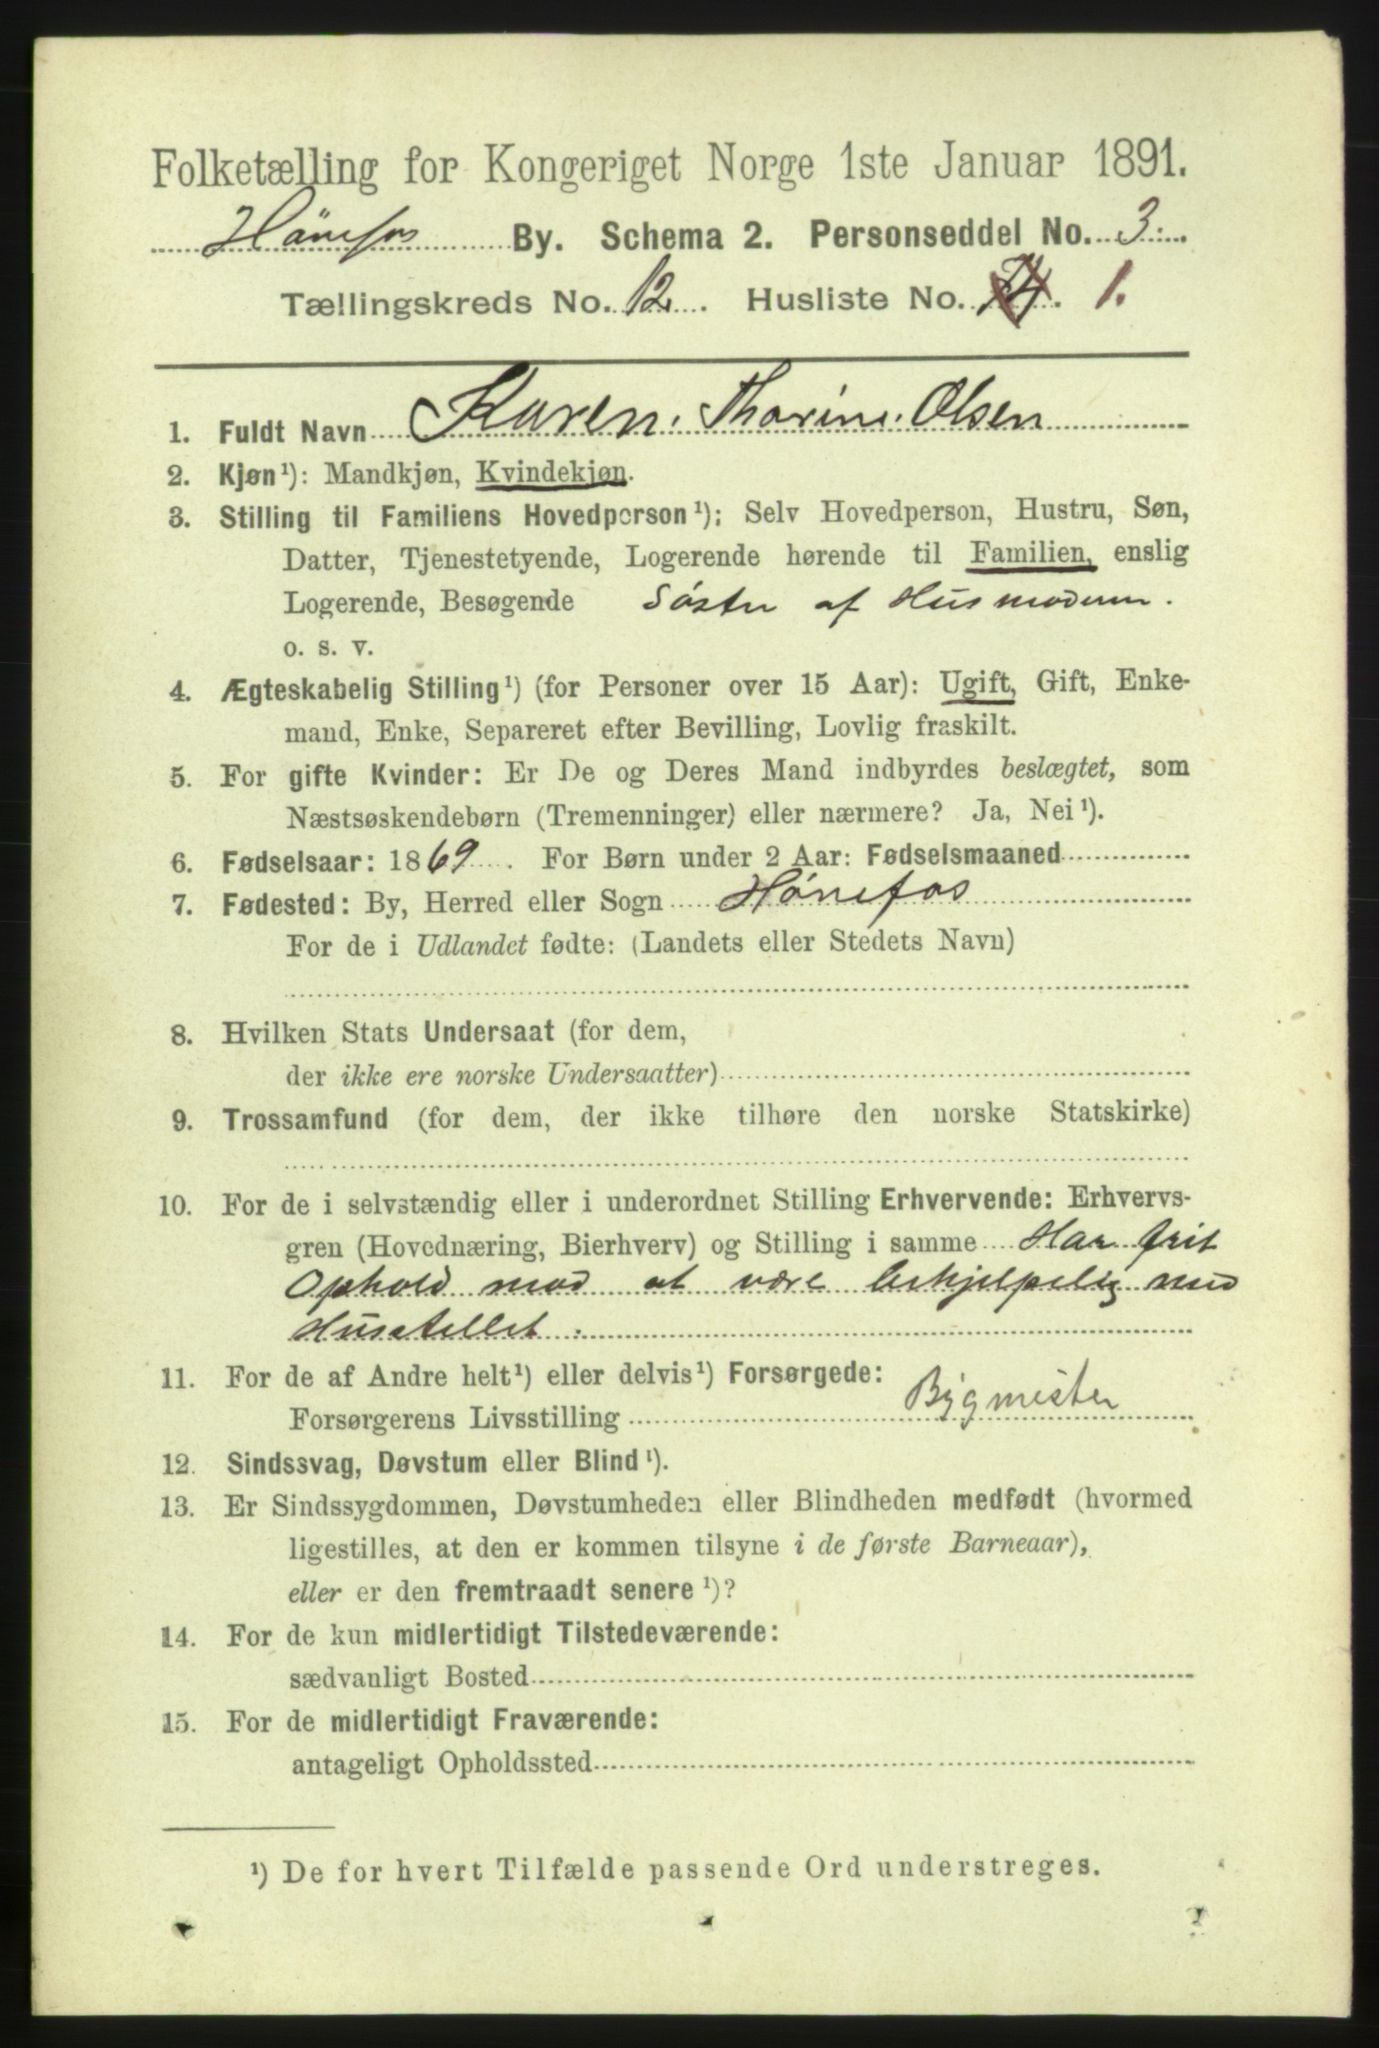 Folketælling for Kongeriget Norge 1ste Januar 1891.
Hønefos By. Schema 2. Personseddel No. 3.
Tællingskreds No. 12. Husliste No. 74. 1.
1. Fuldt Navn Karen Thorine Olsen
2. Kjøn¹): Mandkjøn, Kvindekjøn.
3. Stilling til Familiens Hovedperson¹); Selv Hovedperson, Hustru, Søn,
Datter, Tjenestetyende, Logerende hørende til Familien, enslig
Logerende, Besøgende Søster af Husmoderen.
o. s. v.
4. Ægteskabelig Stilling¹) (for Personer over 15 Aar): Ugift, Gift, Enke-
mand, Enke, Separeret efter Bevilling, Lovlig fraskilt.
5. For gifte Kvinder: Er De og Deres Mand indbyrdes beslægtet, som
Næstsøskendebørn (Tremenninger) eller nærmere? Ja, Nei¹).
6. Fødselsaar: 1869. For Børn under 2 Aar: Fødselsmaaned
7. Fødested: By, Herred eller Sogn Hønefos
For de i Udlandet fødte: (Landets eller Stedets Navn)
8. Hvilken Stats Undersaat (for dem,
der ikke ere norske Undersaatter)
9. Trossamfund (for dem, der ikke tilhøre den norske Statskirke)
10. For de i selvstændig eller i underordnet Stilling Erhvervende: Erhvervs-
gren (Hovednæring, Bierhverv) og Stilling i samme Har frit
Ophold mod at være behjelpelig med
Husstellet.
11. For de af Andre helt¹) eller delvis¹) Forsørgede:
Forsørgerens Livsstilling Bygmester
12. Sindssvag, Døvstum eller Blind¹).
13. Er Sindssygdommen, Døvstumheden eller Blindheden medfødt (hvormed
ligestilles, at den er kommen tilsyne i de første Barneaar),
eller er den fremtraadt senere¹)?
14. For de kun midlertidigt Tilstedeværende:
sædvanligt Bosted
15. For de midlertidigt Fraværende:
antageligt Opholdssted
¹) De for hvert Tilfælde passende Ord understreges.